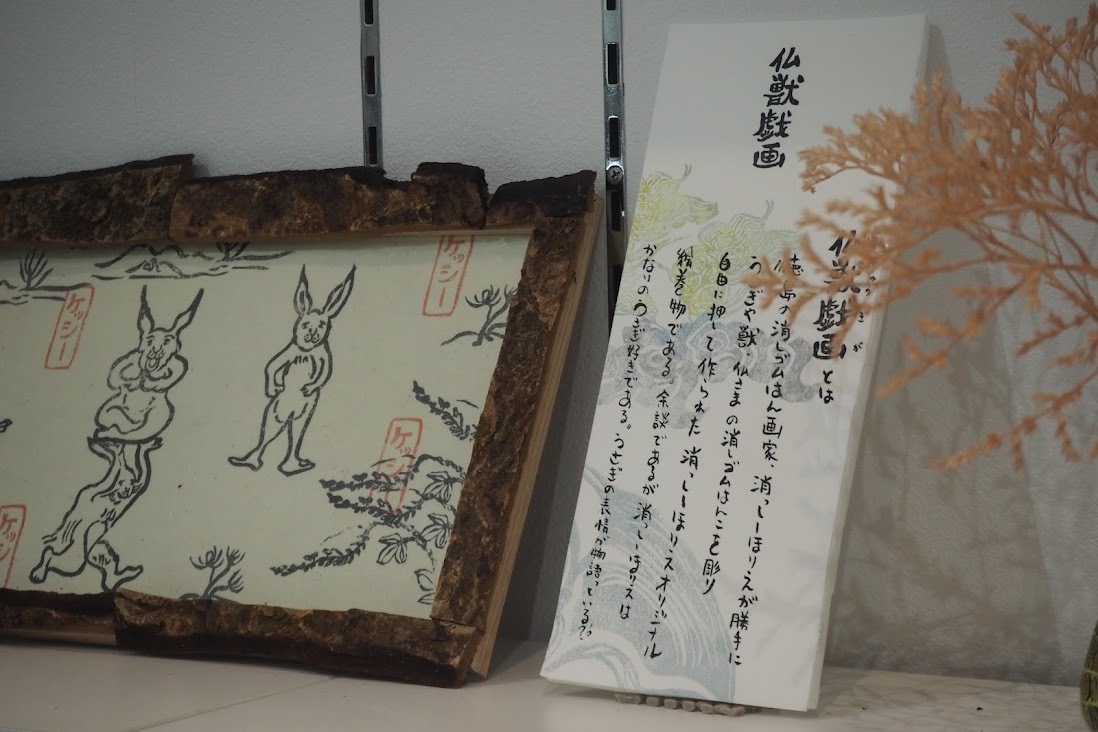 仏獣戯画
仏獣戯画とは
徳島の消しゴムはん画家、消っしーほりえが勝手に
うさぎや獣、仏さまの消しゴムはんこを彫り
自由に押して作られた消っしーほりえオリジナル
絵巻物である。余談であるが消っしーほりえは
かなりのうさぎ好きである。うさぎの表情が物語っている？
ケッシー
ケッシー
ケッシー
ケッシー